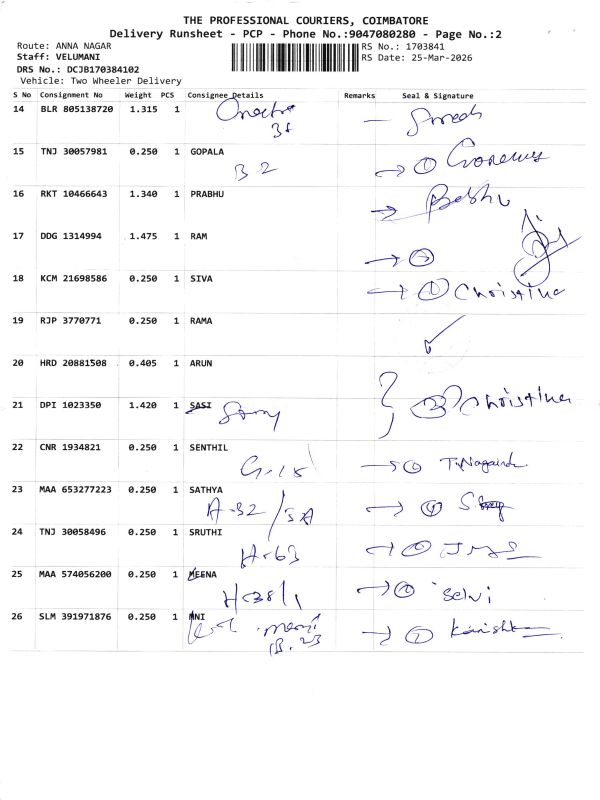 THE PROFESSIONAL COURIERS, COIMBATORE
Delivery Runsheet - PCP - Phone No.:9047080280 - Page No.:2
Route: ANNA NAGAR RS No.: 1703841
Staff: VELUMANI RS Date: 25-Mar-2026
DRS No.: DCJB170384102
Vehicle: Two Wheeler Delivery
S No Consignment No Weight PCS Consignee Details Remarks Seal & Signature
14 BLR 805138720 1.315 1
15 TNJ 30057981 0.250 1 GOPALA
B 2 → 1
16 RKT 10466643 1.340 1 PRABHU
→
17 DDG 1314994 1.475 1 RAM
→
18 KCM 21698586 0.250 1 SIVA
→ 1 Christina
19 RJP 3770771 0.250 1 RAMA
✓
20 HRD 20881508 0.405 1 ARUN
21 DPI 1023350 1.420 1 SASI
Christina
22 CNR 1934821 0.250 1 SENTHIL
G-15 →
23 MAA 653277223 0.250 1 SATHYA
A-32/3A →
24 TNJ 30058496 0.250 1 SRUTHI
H-63 →
25 MAA 574056200 0.250 1 MEENA
H-38/1 → Selvi
26 SLM 391971876 0.250 1 MNI
B.23 →